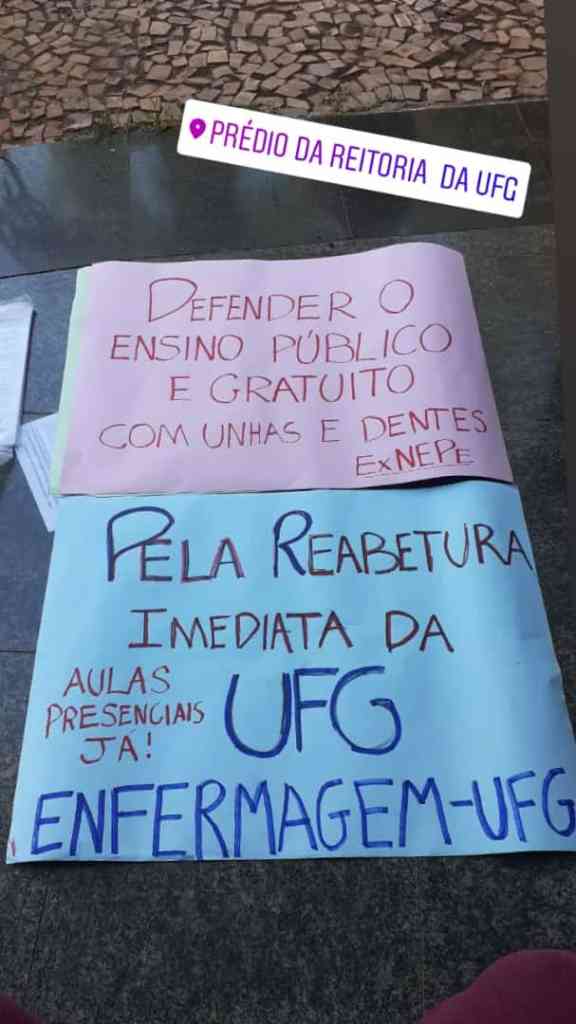 PRÉDIO DA REITORIA DA UFG
DEFENDER O
ENSINO PÚBLICO
E GRATUITO
COM UNHAS E DENTES
EXNEPE
PELA REABETURA
IMEDIATA DA
AULAS
PRESENCIAIS
JÁ!
UFG
ENFERMAGEM-UFG